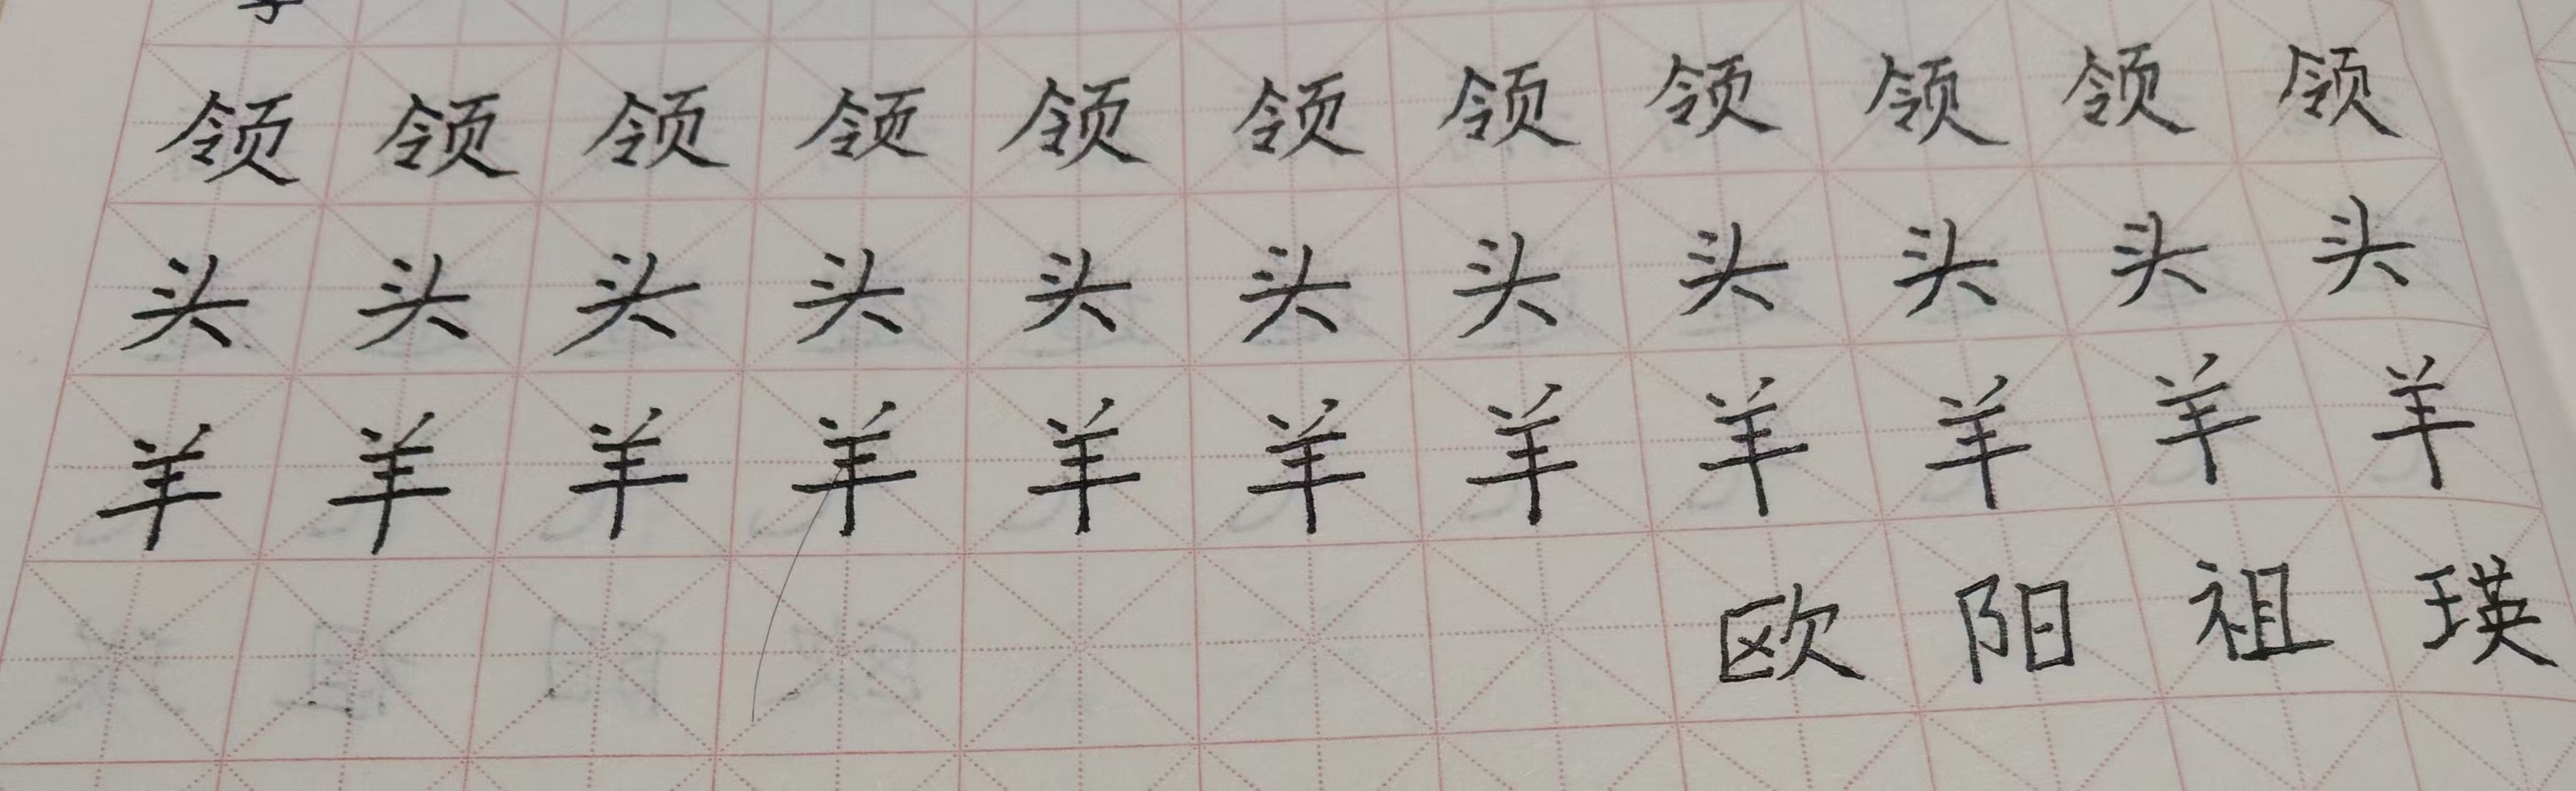 领领领领领领领领领领领
头头头头头头头头头头头
羊羊羊羊羊羊羊羊羊羊羊
欧阳祖瑛